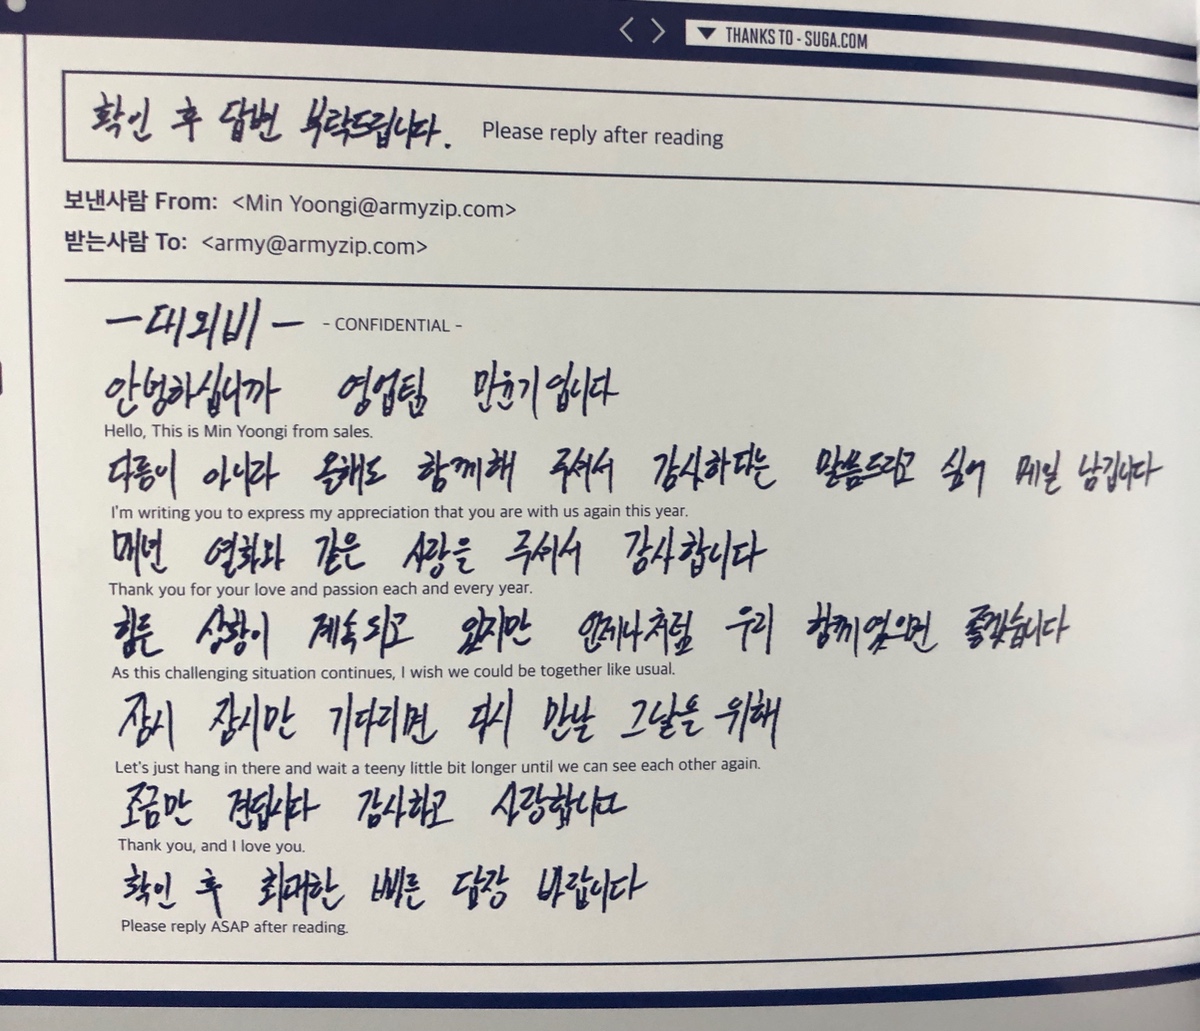 THANKS TO - SUGA.COM
확인 후 답변 부탁드립니다. Please reply after reading
보낸사람 From: <Min Yoongi@armyzip.com>
받는사람 To: <army@armyzip.com>
-대외비- - CONFIDENTIAL -
안녕하십니까 영업팀 민윤기입니다
Hello, This is Min Yoongi from sales.
다름이 아니라 올해도 함께해 주셔서 감사하다는 말씀드리고 싶어 메일 남깁니다
I'm writing you to express my appreciation that you are with us again this year.
매년 열화와 같은 사랑을 주셔서 감사합니다
Thank you for your love and passion each and every year.
힘든 상황이 계속되고 있지만 언제나처럼 우리 함께였으면 좋겠습니다
As this challenging situation continues, I wish we could be together like usual.
잠시 잠시만 기다리면 다시 만날 그날을 위해
Let's just hang in there and wait a teeny little bit longer until we can see each other again.
조금만 견딥시다 감사하고 사랑합니다
Thank you, and I love you.
확인 후 최대한 빠른 답장 바랍니다
Please reply ASAP after reading.